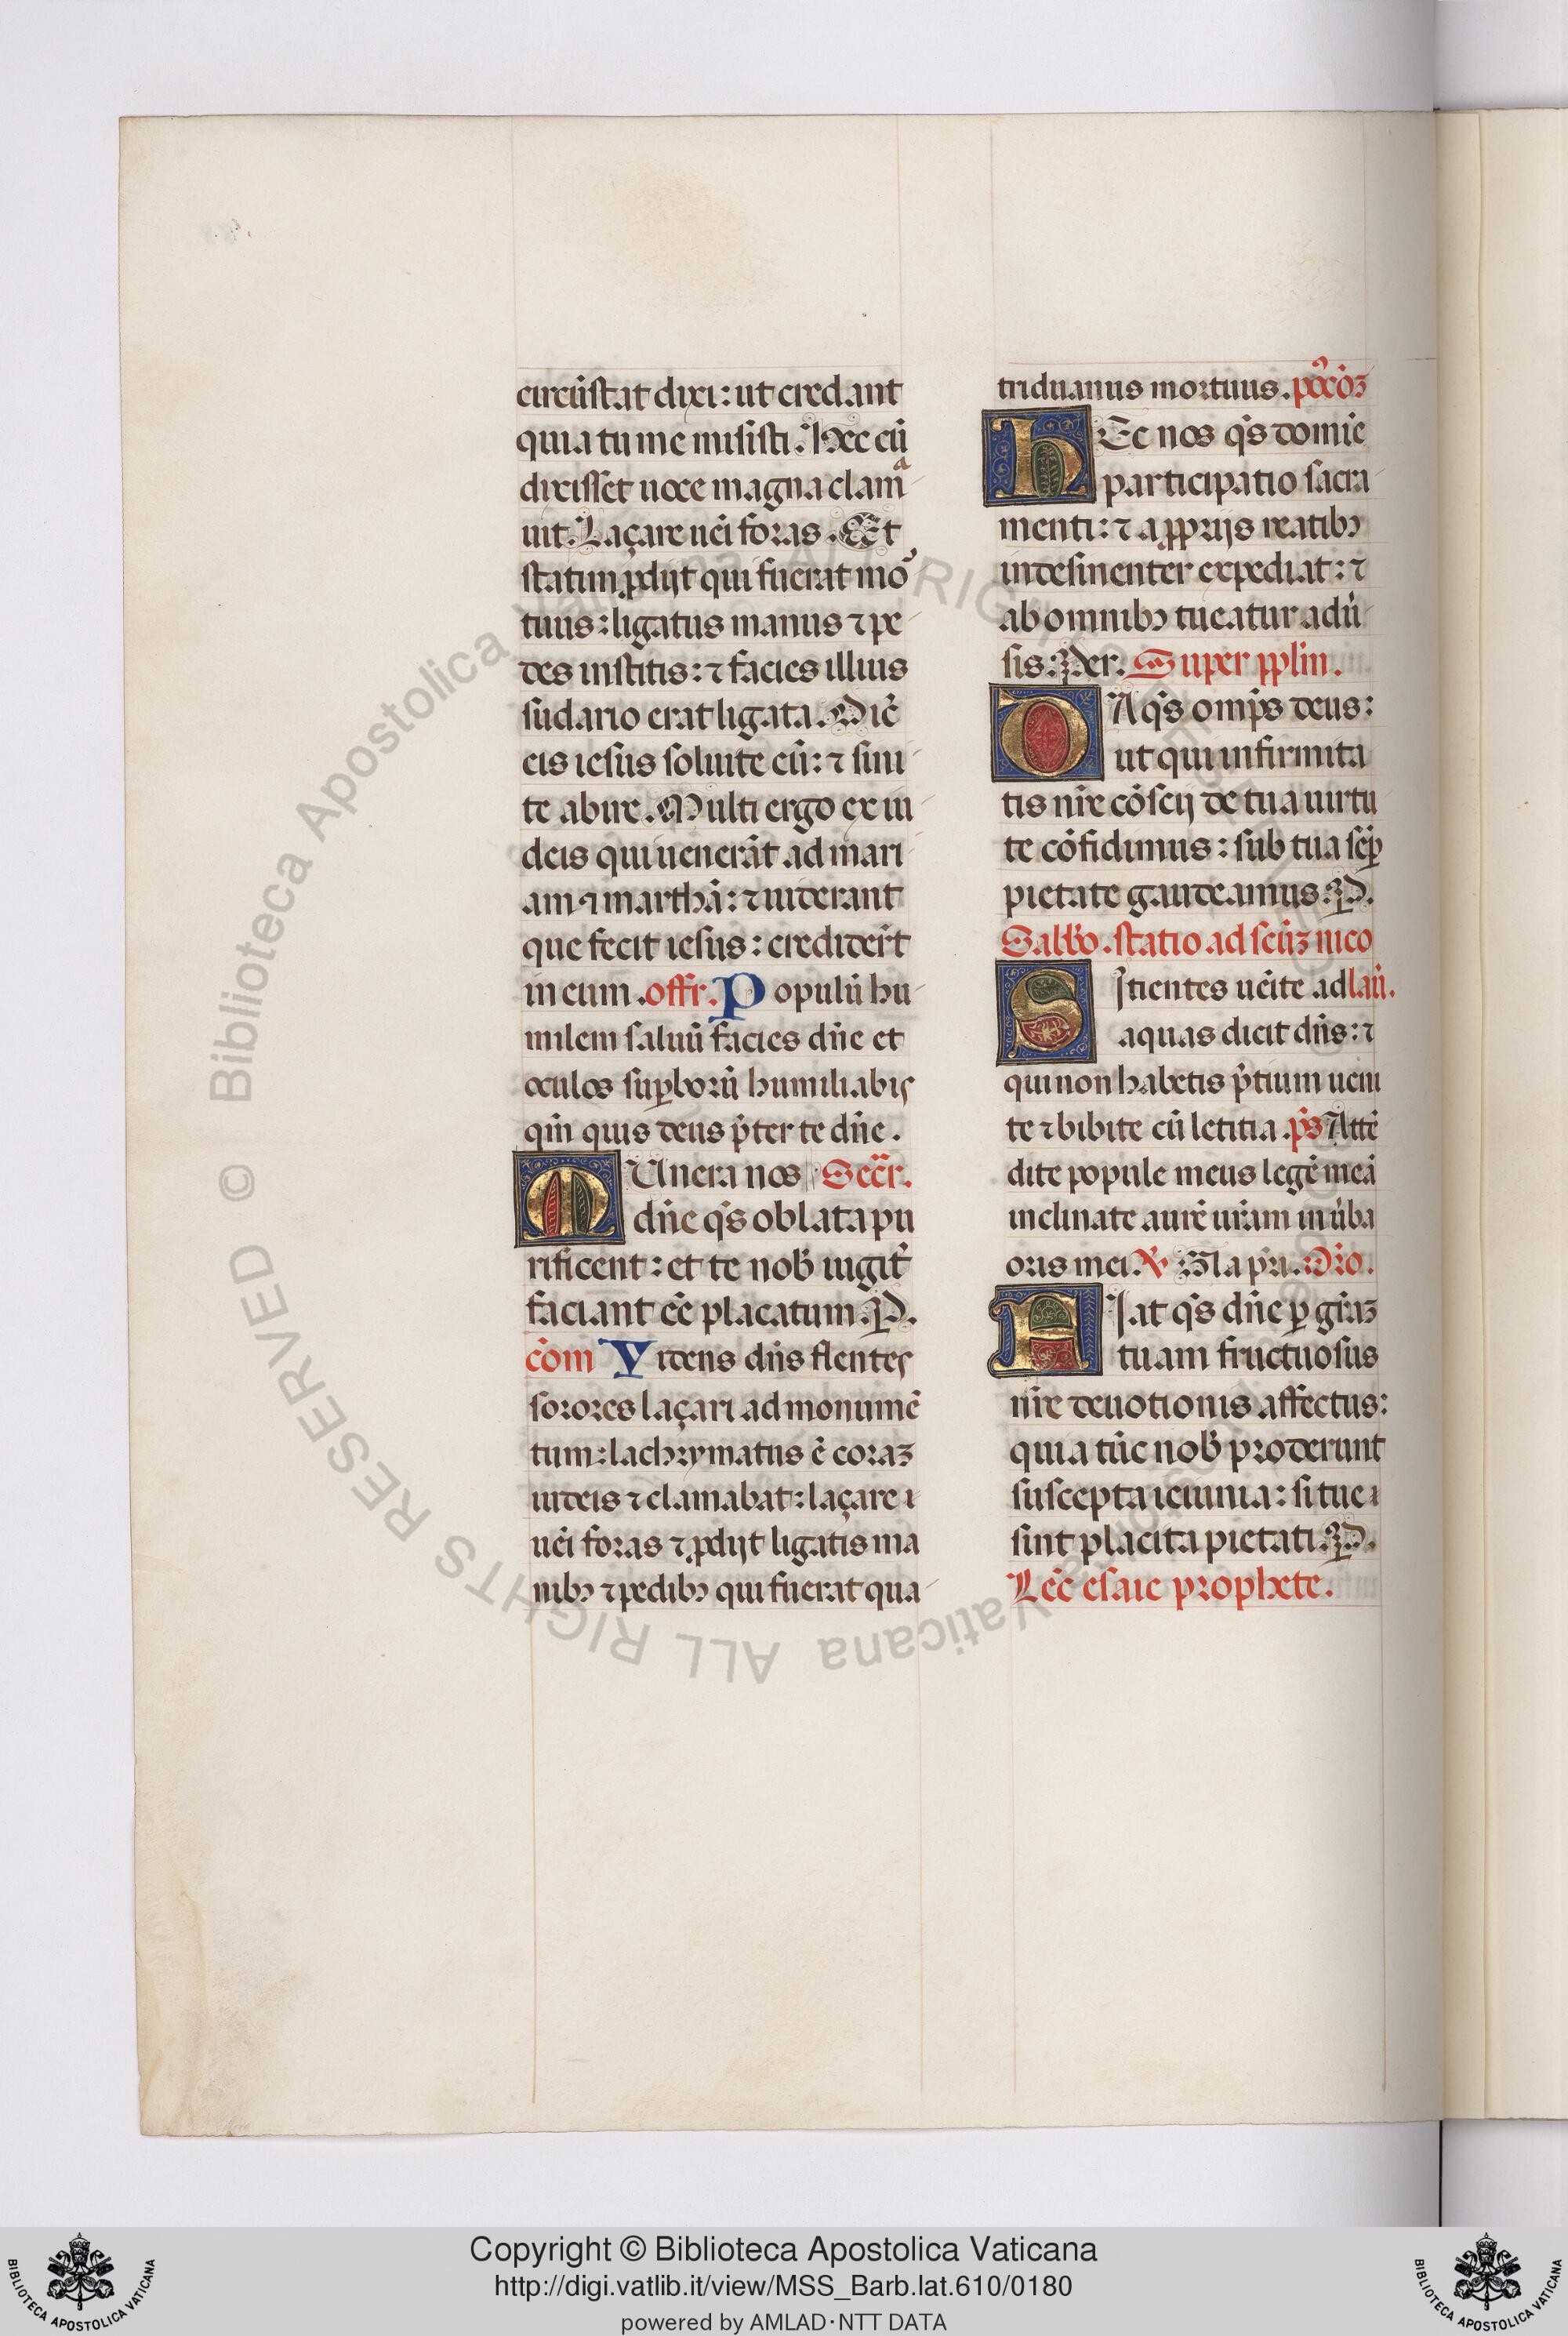 circūstat dixi: ut credant
quia tu me misisti. Hec cū
dixisset uoce magna clam̊a
uit. Laçare uēi foras. Et
statim ꝓdijt qui fuerat mo
tuus: ligatus manus ⁊ pe
des institis: ⁊ facies illius
sudario erat ligata. Dic̄
eis iesus soluite eū: ⁊ sini
te abire. Multi ergo ex iu
deis qui uenerāt ad mari
am ⁊ marthā: ⁊ uiderant
que fecit iesus: credider̄t
in eum. offr. Populū hu
milem saluū facies dn̄e et
oculos suꝑborū humiliabis
qm̄ quis deus p̄ter te dn̄e.
MUnera nos Secr̄.
dn̄e qs̄ oblata pu
rificent: et te nob̄ iugit̄
faciant eē placatum. P.
cōm Videns dn̄s flentes
sorores laçari ad monumē
tum: lachrymatus ē coraꝫ
iudeis ⁊ clamabat: laçare
uēi foras ⁊ ꝓdijt ligatis ma
nibꝰ ⁊ pedibꝰ qui fuerat qua
triduanus mortuus. po᷒cōꝫ
hEc nos qs̄ domīe
participatio sacra
menti: ⁊ a ꝓprijs reatibꝰ
indesinenter expediat: ⁊
ab omnibꝰ tueatur adū
sis: Per. Super pplm̄.
DA qs̄ omp̄s deus:
ut qui infirmita
tis nr̄e cōscij de tua uirtu
te cōfidimus: sub tua sēꝑ
pietate gaudeamus. P.
Sabb̄o. statio ad scūꝫ nico
SItientes uēite ad laū.
aquas dicit dn̄s: ⁊
qui non habetis p̄tium ueni
te ⁊ bibite cū letitia. ps̄ Attē
dite popule meus legē meā
inclinate aurē ur̄am in ūba
oris mei. ℣ Gl̄a pr̄i. Or̄o.
FIat qs̄ dn̄e ꝑ gr̄aꝫ
tuam fructuosus
nr̄e deuotionis affectus:
quia tūc nob̄ proderunt
suscepta ieiunia: si tue
sint placita pietati. P.
Lec̄ esaie prophete.
Copyright © Biblioteca Apostolica Vaticana
http://digi.vatlib.it/view/MSS_Barb.lat.610/0180
powered by AMLAD·NTT DATA
© Biblioteca Apostolica Vaticana ALL RIGHTS RESERVED
BIBLIOTECA APOSTOLICA VATICANA
BIBLIOTECA APOSTOLICA VATICANA